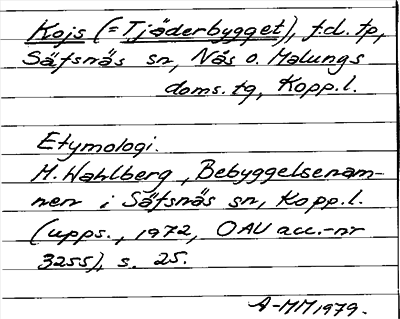 Kojs (= Tjäderbygget), f.d. tp,
Säfsnäs sn, Nås o. Malungs
doms. tg, Kopp.l.
Etymologi.
M. Wahlberg, Bebyggelsenam-
nen i Säfsnäs sn, Kopp.l.
(upps., 1972, OAU acc.-nr
3255), s. 25.
A-MM1979.